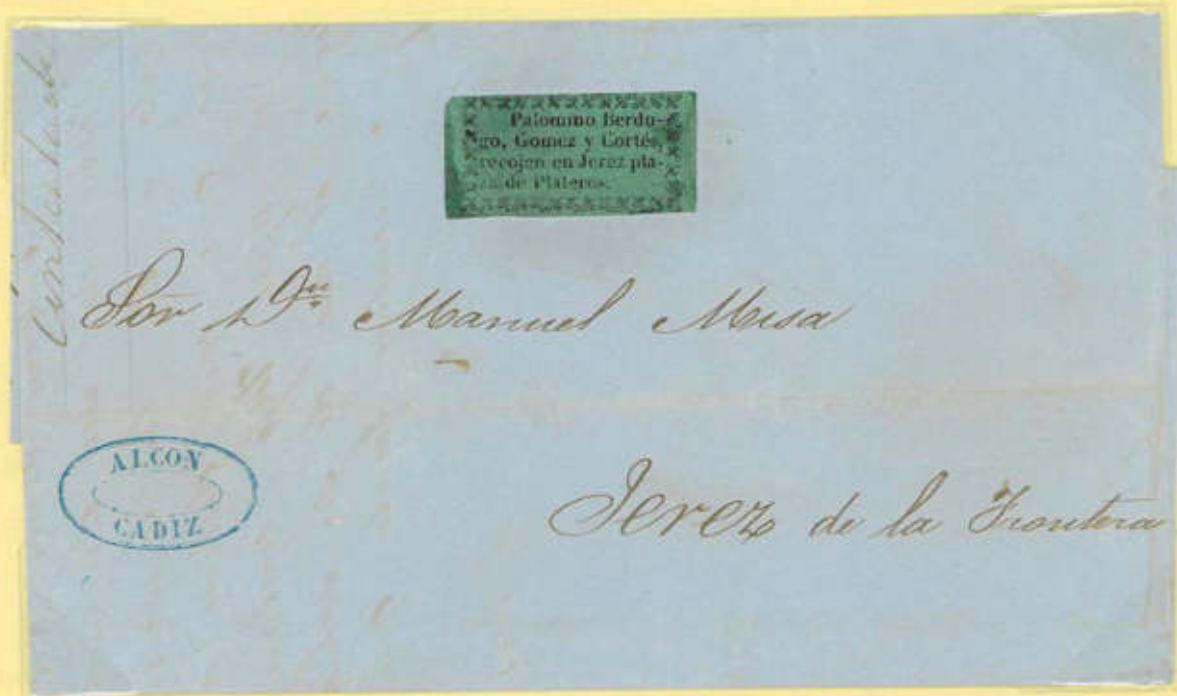 Contestada
Palomino Berdu-
go, Gomez y Cortés,
recojen en Jerez pla-
za de Plateros.
Sor Dn Manuel Misa
ALCON
CADIZ
Jerez de la Frontera